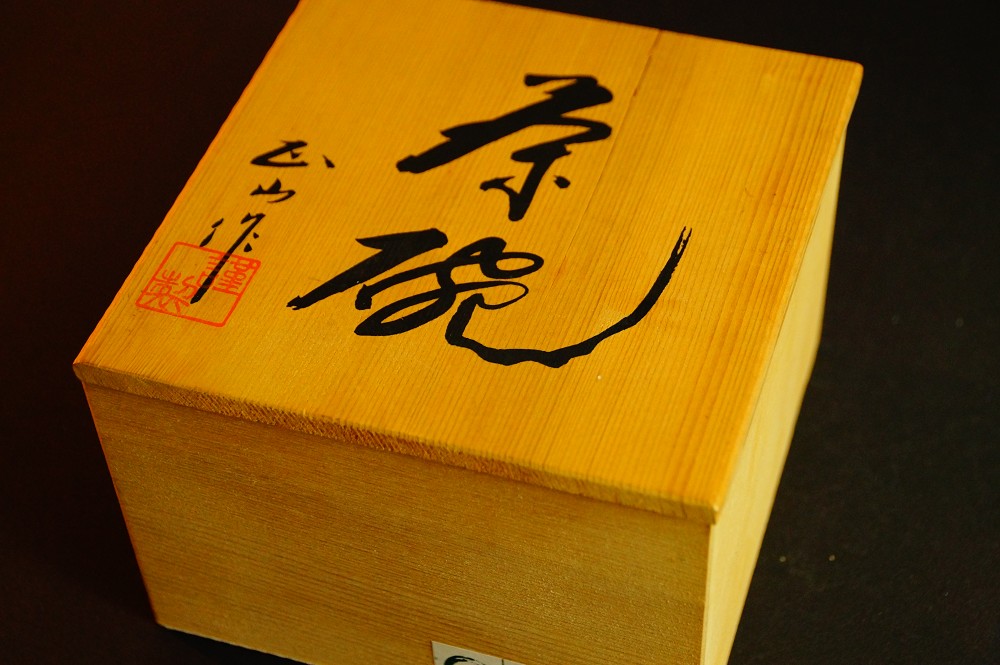 茶碗
正山作